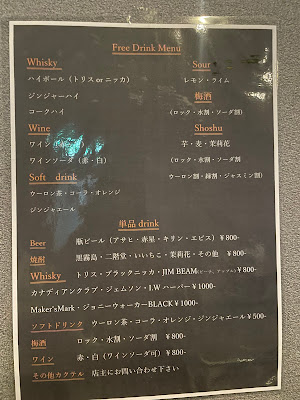 Free Drink Menu
Whisky
ハイボール（トリス or ニッカ）
ジンジャーハイ
コークハイ
Wine
ワイン
ワインソーダ（赤・白）
Soft drink
ウーロン茶・コーラ・オレンジ
ジンジャエール
Sour
レモン・ライム
梅酒
（ロック・水割・ソーダ割）
Shoshu
芋・麦・茉莉花
（ロック・水割・ソーダ割
ウーロン割・緑割・ジャスミン割）
単品 drink
Beer 瓶ビール（アサヒ・赤星・キリン・エビス）￥800-
焼酎 黒霧島・二階堂・いいちこ・茉莉花・その他 ￥800-
Whisky トリス・ブラックニッカ・JIM BEAM ￥800-
カナディアンクラブ・ジェムソン・I.W ハーパー￥1000-
Maker'sMark・ジョニーウォーカーBLACK￥1000-
ソフトドリンク ウーロン茶・コーラ・オレンジ・ジンジャエール￥500-
梅酒 ロック・水割・ソーダ割 ￥800-
ワイン 赤・白（ワインソーダ可）￥800-
その他カクテル 店主にお問い合わせ下さい